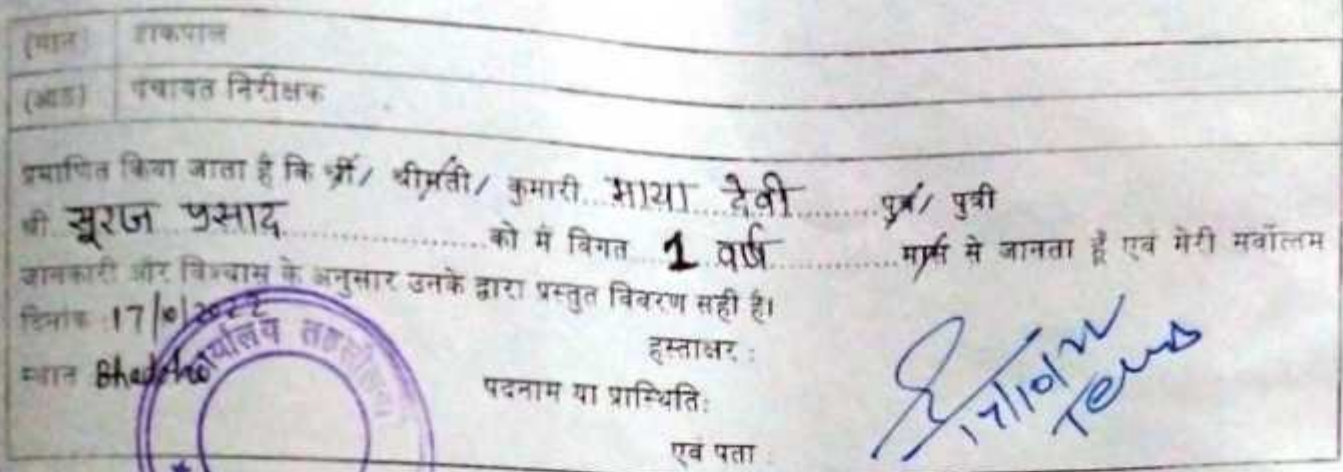 (सात) डाकपाल
(आठ) पंचायत निरीक्षक
प्रमाणित किया जाता है कि श्री/ श्रीमती/ कुमारी...माया देवी........पुत्र/ पुत्री
श्री सूरज प्रसाद................को मै विगत..1 वर्ष............मास से जानता हूँ एवं मेरी सर्वोत्तम
जानकारी और विश्वास के अनुसार उनके द्वारा प्रस्तुत विवरण सही है।
दिनांक :17/
स्थान
कार्यालय तहसीलदार
हस्ताक्षर :
पदनाम या प्रास्थिति:
एवं पता :
17/10/22